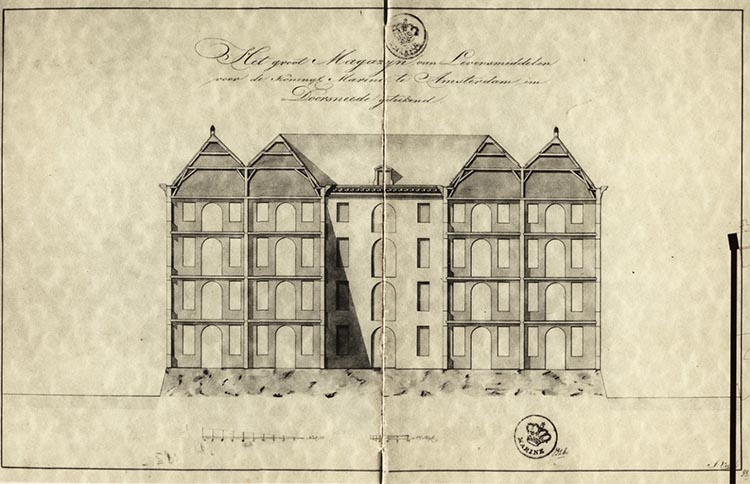 Het groot Magazyn van Levensmiddelen
voor de Koningl. Marine te Amsterdam in
Doorsneede geteekend
MARINE